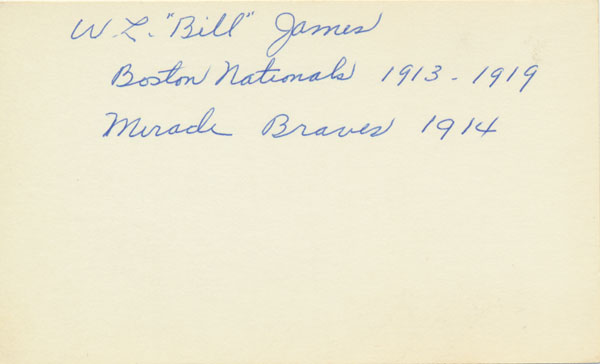 W. L. "Bill" James
Boston Nationals 1913 - 1919
Miracle Braves 1914